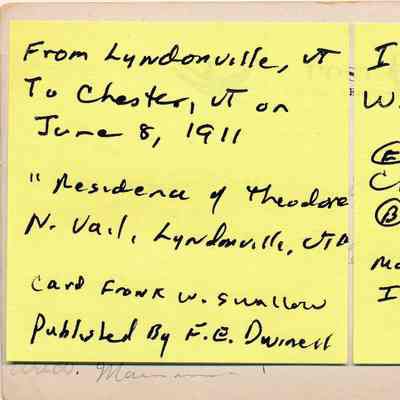 From Lyndonville, VT
To Chester, VT on
June 8, 1911
" Residence of Theodore
N. Vail, Lyndonville, VT "
Card Frank W. Swallow
Published By F.E. Dwinell
I
W.
E
C
B
Ma
I